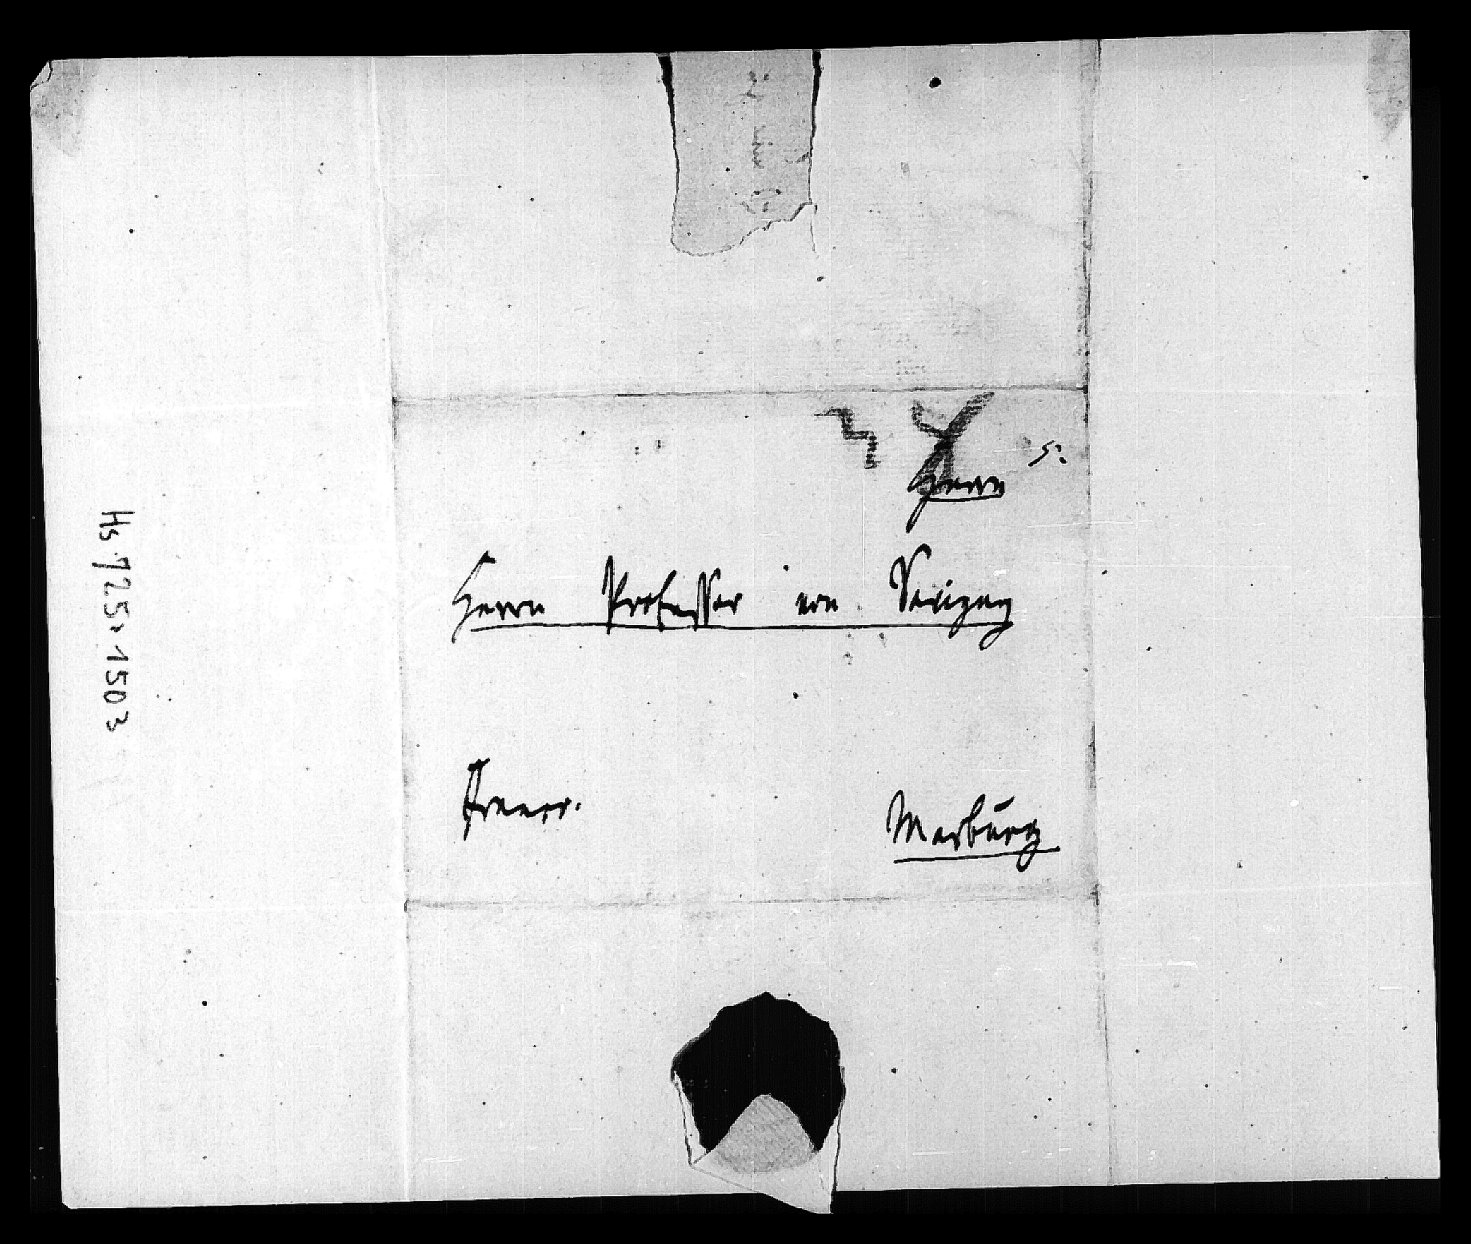 Herrn
Herrn Professor von Savigny
Franco.
Marburg
Hs. 725: 1503